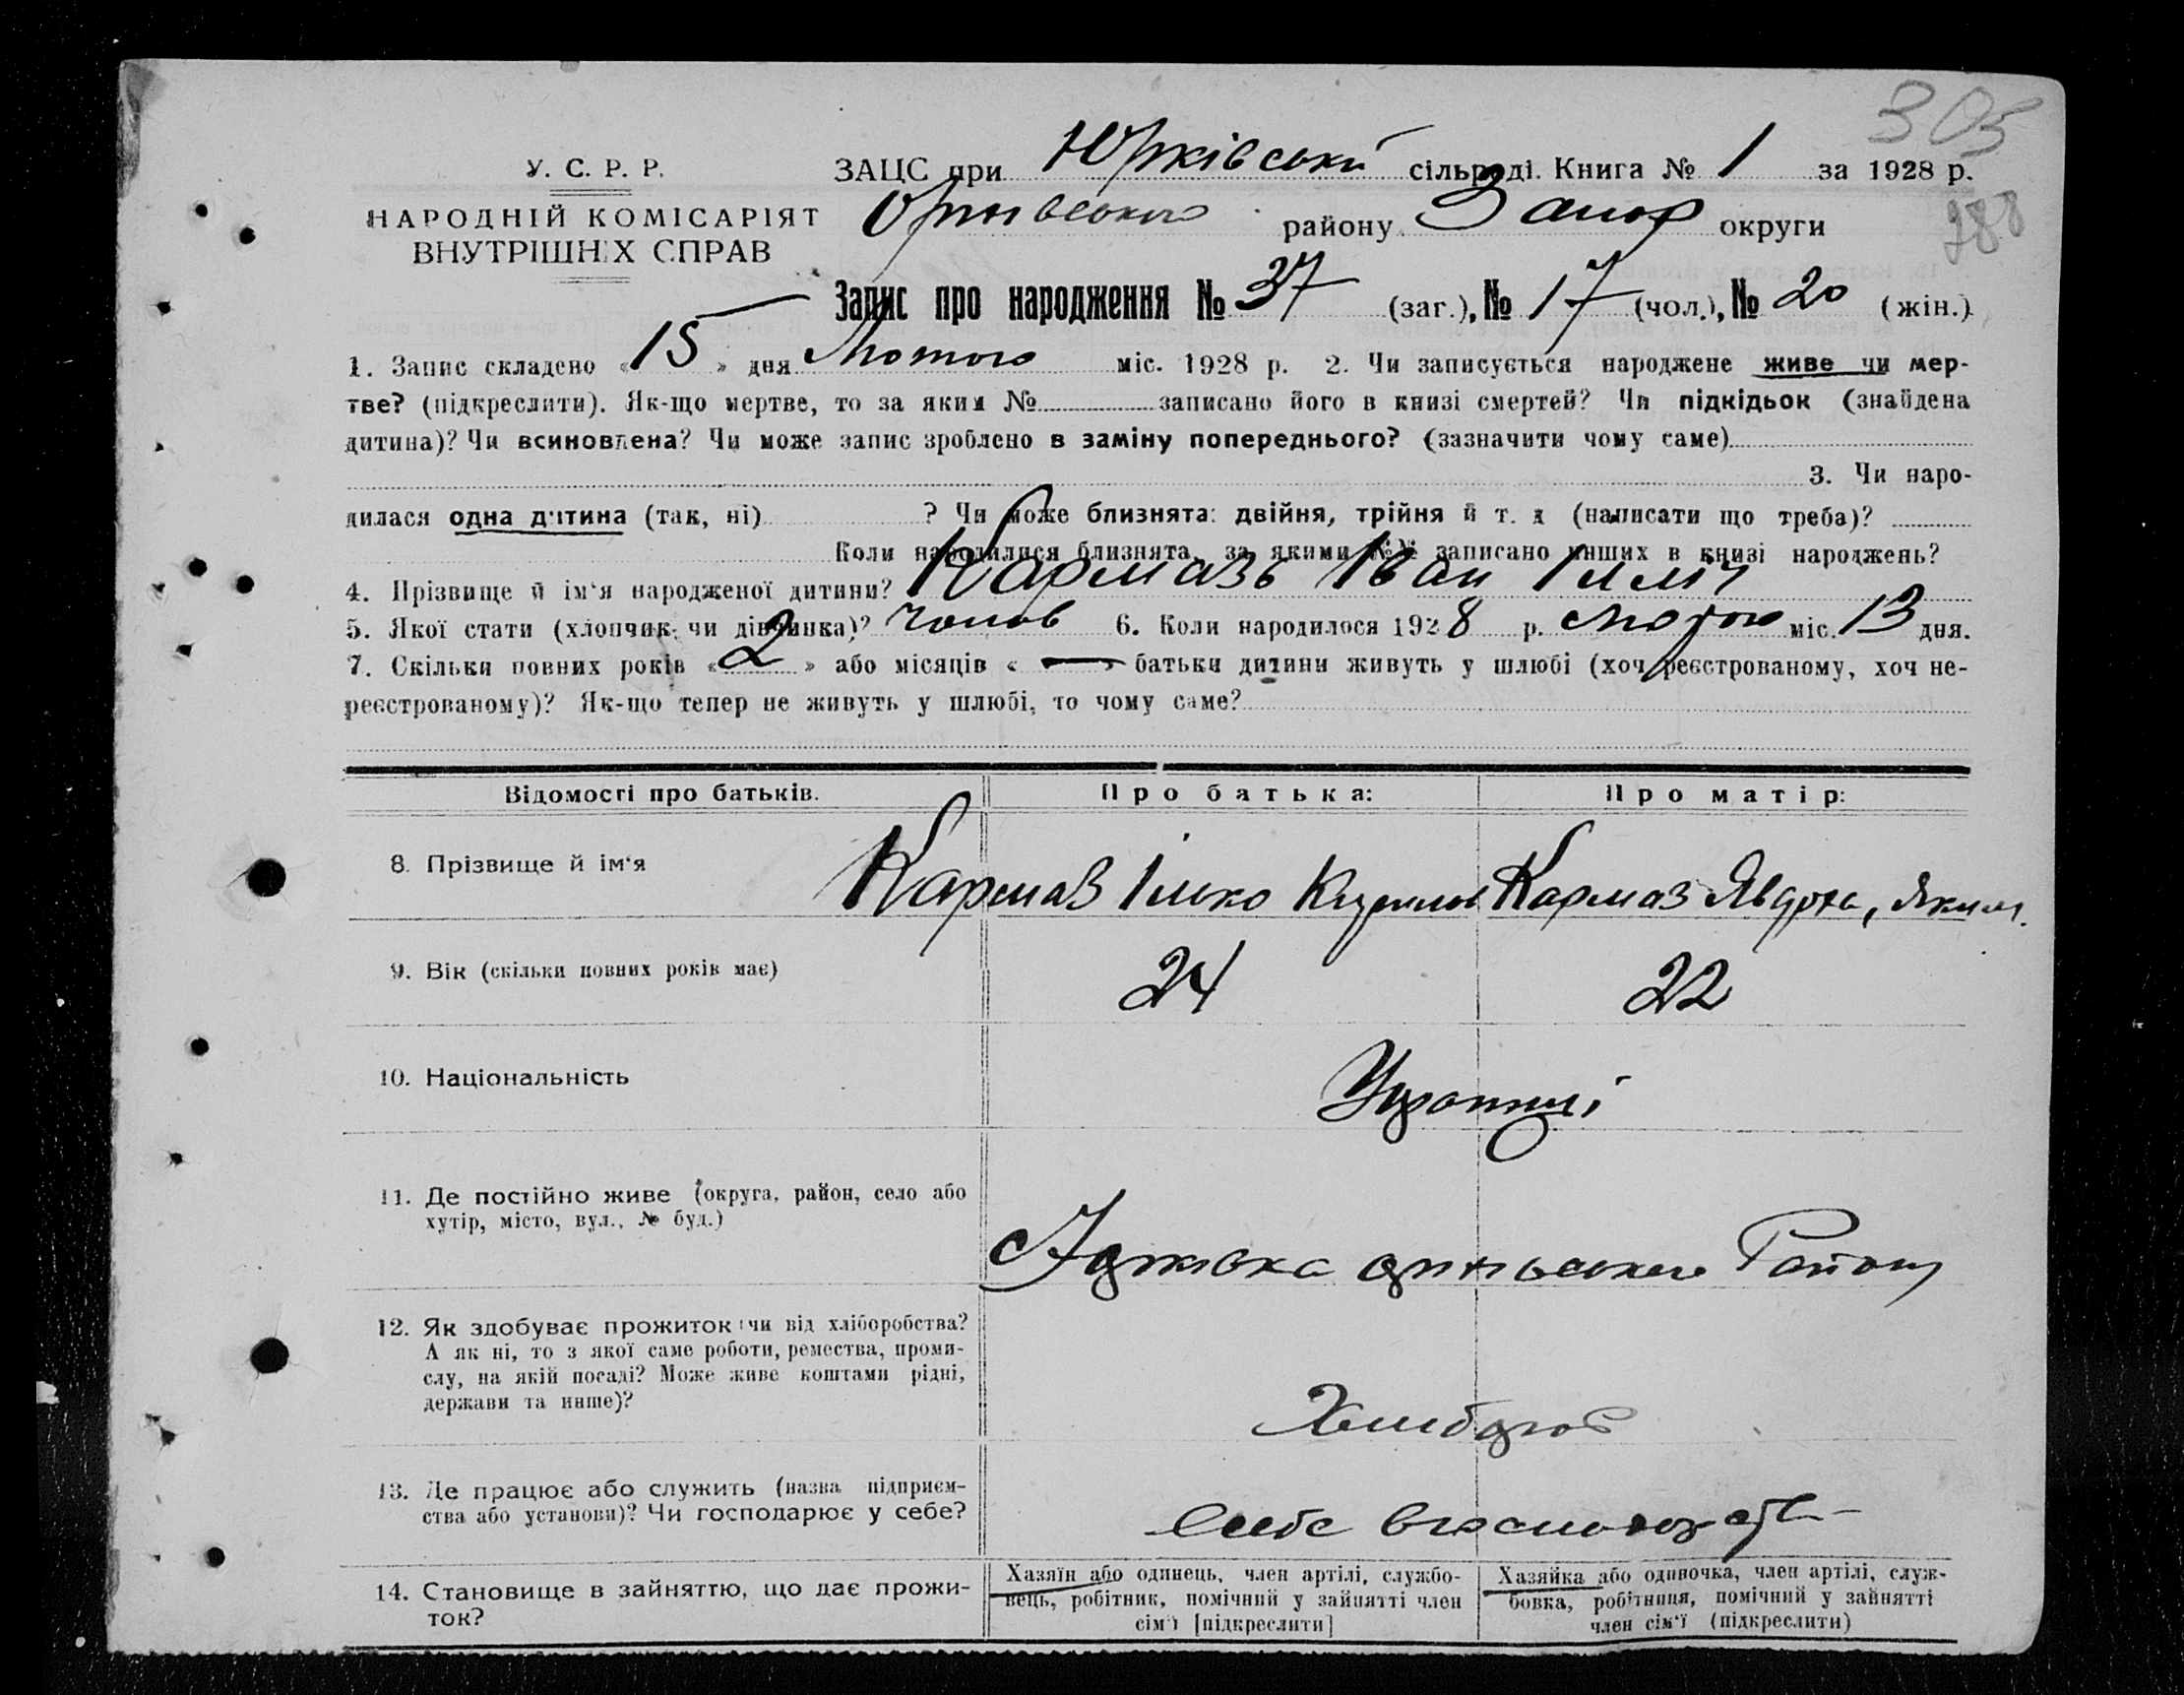 305
У. С. Р. Р.
ЗАЦС при Юрківській сільраді. Книга № 1 за 1928 р.
НАРОДНІЙ КОМІСАРІЯТ
ВНУТРІШНІХ СПРАВ
Оріхівського району Запор округи
288
Запис про народження № 37 (заг.), № 17 (чол.), № 20 (жін.)
1. Запис складено « 15 » дня Лютого міс. 1928 р. 2. Чи записується народжене живе чи мер-
тве? (підкреслити). Як-що мертве, то за яким № записано його в книзі смертей? Чи підкідьок (знайдена
дитина)? Чи всиновлена? Чи може запис зроблено в заміну попереднього? (зазначити чому саме)
3. Чи наро-
дилася одна дитина (так, ні) ? Чи може близнята: двійня, трійня й т. д (написати що треба)?
Коли народилися близнята, за якими №№ записано инших в книзі народжень?
4. Прізвище й ім'я народженої дитини? Кармазь Іван Ілліч
5. Якої стати (хлопчик чи дівчинка)? Чолов 6. Коли народилося 1928 р. Лютого міс. 13 дня.
7. Скільки повних років « 2 » або місяців « — » батьки дитини живуть у шлюбі (хоч реєстрованому, хоч не-
реєстрованому)? Як-що тепер не живуть у шлюбі, то чому саме?
Відомості про батьків.
Про батька:
Про матір:
8. Прізвище й ім'я
Кармаз Ілько
Кармаз Явдоха, Яким.
9. Вік (скільки повних років має)
24
22
10. Національність
Українці
11. Де постійно живе (округа, район, село або
хутір, місто, вул., № буд.)
с Юрківка Оріхівського Району
12. Як здобуває прожиток (чи від хліборобства?
А як ні, то з якої саме роботи, ремества, проми-
слу, на якій посаді? Може живе коштами рідні,
держави та инше)?
Хлибороб
13. Де працює або служить (назва підприєм-
ства або установи)? Чи господарює у себе?
14. Становище в зайняттю, що дає прожи-
ток?
Хазяїн або одинець, член артілі, службо-
вець, робітник, помічний у зайнятті член
сім'ї [підкреслити]
Хазяйка або одиночка, член артілі, служ-
бовка, робітниця, помічний у зайнятті
член сім'ї (підкреслити)